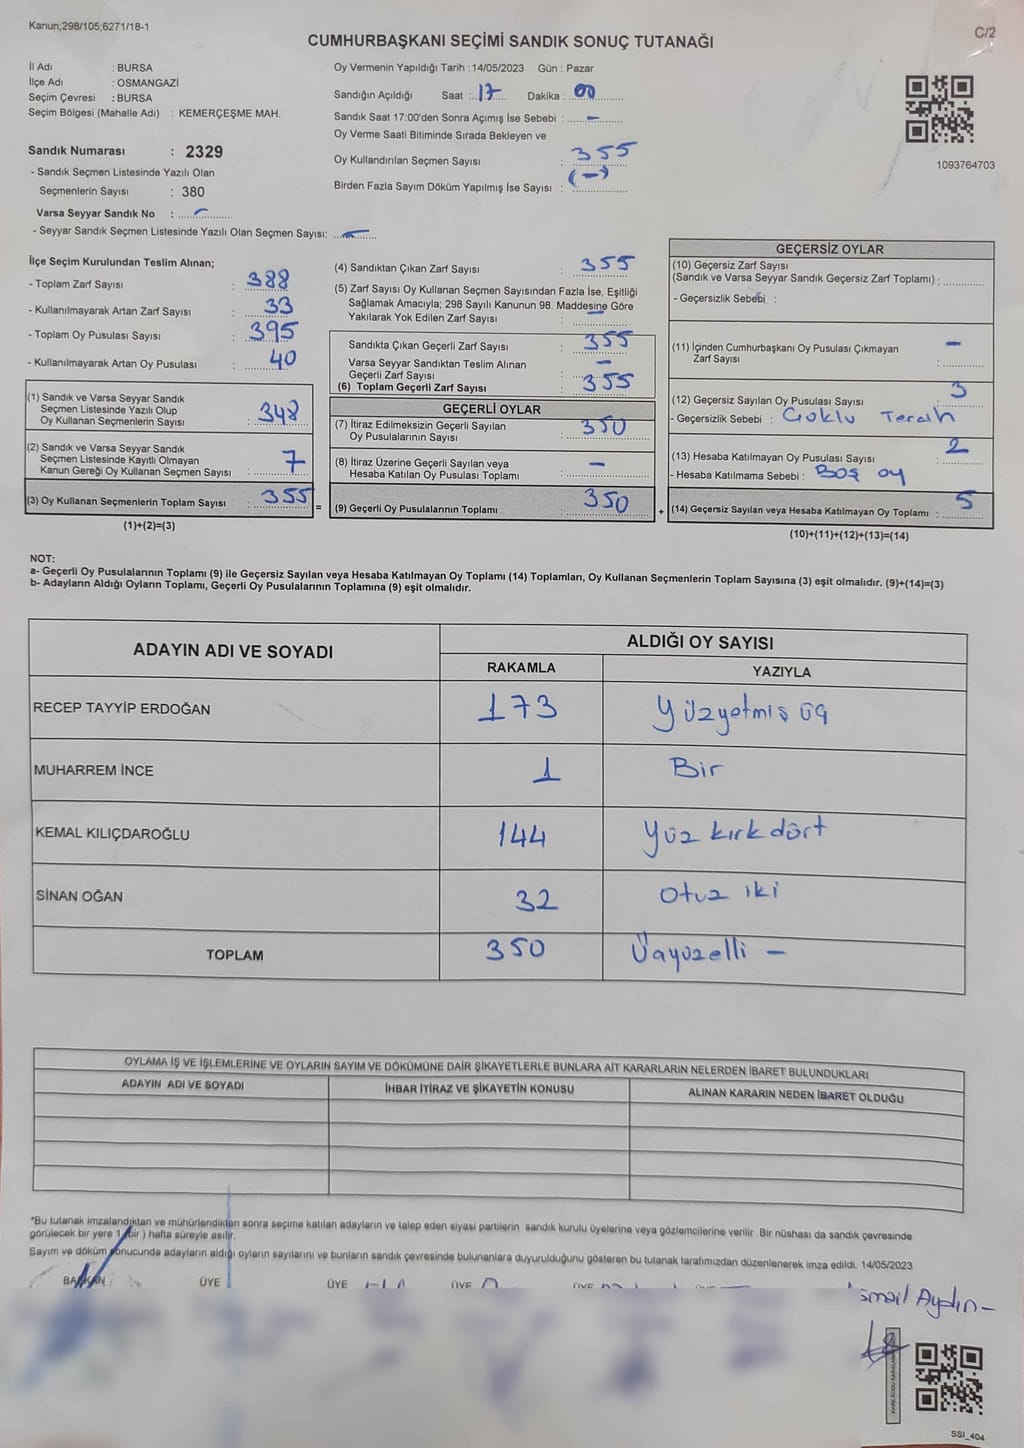 Kanun;298/105;6271/18-1
C/2
CUMHURBAŞKANI SEÇİMİ SANDIK SONUÇ TUTANAĞI
İl Adı : BURSA
İlçe Adı : OSMANGAZİ
Seçim Çevresi : BURSA
Seçim Bölgesi (Mahalle Adı) : KEMERÇEŞME MAH.
Sandık Numarası : 2329
- Sandık Seçmen Listesinde Yazılı Olan
Seçmenlerin Sayısı : 380
Varsa Seyyar Sandık No : -
- Seyyar Sandık Seçmen Listesinde Yazılı Olan Seçmen Sayısı: -
Oy Vermenin Yapıldığı Tarih : 14/05/2023 Gün : Pazar
Sandığın Açıldığı Saat : 17 Dakika : 00
Sandık Saat 17:00'den Sonra Açımış İse Sebebi : -
Oy Verme Saati Bitiminde Sırada Bekleyen ve
Oy Kullandırılan Seçmen Sayısı : 355
Birden Fazla Sayım Döküm Yapılmış İse Sayısı : (-)
1093764703
İlçe Seçim Kurulundan Teslim Alınan;
- Toplam Zarf Sayısı : 388
- Kullanılmayarak Artan Zarf Sayısı : 33
- Toplam Oy Pusulası Sayısı : 395
- Kullanılmayarak Artan Oy Pusulası : 40
(1) Sandık ve Varsa Seyyar Sandık
Seçmen Listesinde Yazılı Olup
Oy Kullanan Seçmenlerin Sayısı : 348
(2) Sandık ve Varsa Seyyar Sandık
Seçmen Listesinde Kayıtlı Olmayan
Kanun Gereği Oy Kullanan Seçmen Sayısı : 7
(3) Oy Kullanan Seçmenlerin Toplam Sayısı : 355
(1)+(2)=(3)
=
(4) Sandıktan Çıkan Zarf Sayısı : 355
(5) Zarf Sayısı Oy Kullanan Seçmen Sayısından Fazla İse, Eşitliği
Sağlamak Amacıyla; 298 Sayılı Kanunun 98. Maddesine Göre
Yakılarak Yok Edilen Zarf Sayısı : -
Sandıkta Çıkan Geçerli Zarf Sayısı : 355
Varsa Seyyar Sandıktan Teslim Alınan
Geçerli Zarf Sayısı : -
(6) Toplam Geçerli Zarf Sayısı : 355
GEÇERLİ OYLAR
(7) İtiraz Edilmeksizin Geçerli Sayılan
Oy Pusulalarının Sayısı : 350
(8) İtiraz Üzerine Geçerli Sayılan veya
Hesaba Katılan Oy Pusulası Toplamı : -
(9) Geçerli Oy Pusulalarının Toplamı : 350
+
GEÇERSİZ OYLAR
(10) Geçersiz Zarf Sayısı
(Sandık ve Varsa Seyyar Sandık Geçersiz Zarf Toplamı) :
- Geçersizlik Sebebi :
(11) İçinden Cumhurbaşkanı Oy Pusulası Çıkmayan
Zarf Sayısı : -
(12) Geçersiz Sayılan Oy Pusulası Sayısı : 3
- Geçersizlik Sebebi : Çoklu Tercih
(13) Hesaba Katılmayan Oy Pusulası Sayısı : 2
- Hesaba Katılmama Sebebi : Boş oy
(14) Geçersiz Sayılan veya Hesaba Katılmayan Oy Toplamı : 5
(10)+(11)+(12)+(13)=(14)
NOT:
a- Geçerli Oy Pusulalarının Toplamı (9) ile Geçersiz Sayılan veya Hesaba Katılmayan Oy Toplamı (14) Toplamları, Oy Kullanan Seçmenlerin Toplam Sayısına (3) eşit olmalıdır. (9)+(14)=(3)
b- Adayların Aldığı Oyların Toplamı, Geçerli Oy Pusulalarının Toplamına (9) eşit olmalıdır.
ADAYIN ADI VE SOYADI ALDIĞI OY SAYISI
RAKAMLA YAZIYLA
RECEP TAYYİP ERDOĞAN 173 Yüzyetmiş üç
MUHARREM İNCE 1 Bir
KEMAL KILIÇDAROĞLU 144 Yüz kırk dört
SİNAN OĞAN 32 Otuz iki
TOPLAM 350 Üçyüzelli -
OYLAMA İŞ VE İŞLEMLERİNE VE OYLARIN SAYIM VE DÖKÜMÜNE DAİR ŞİKAYETLERLE BUNLARA AİT KARARLARIN NELERDEN İBARET BULUNDUKLARI
ADAYIN ADI VE SOYADI İHBAR İTİRAZ VE ŞİKAYETİN KONUSU ALINAN KARARIN NEDEN İBARET OLDUĞU
*Bu tutanak imzalandıktan ve mühürlendikten sonra seçime katılan adayların ve talep eden siyasi partilerin sandık kurulu üyelerine veya gözlemcilerine verilir. Bir nüshası da sandık çevresinde
görülecek bir yere 1 (bir) hafta süreyle asılır.
Sayım ve döküm sonucunda adayların aldığı oyların sayılarını ve bunların sandık çevresinde bulunanlara duyurulduğunu gösteren bu tutanak tarafımızdan düzenlenerek imza edildi. 14/05/2023
BAŞKAN ÜYE ÜYE ÜYE ÜYE
İsmail Aydın
SSI_404